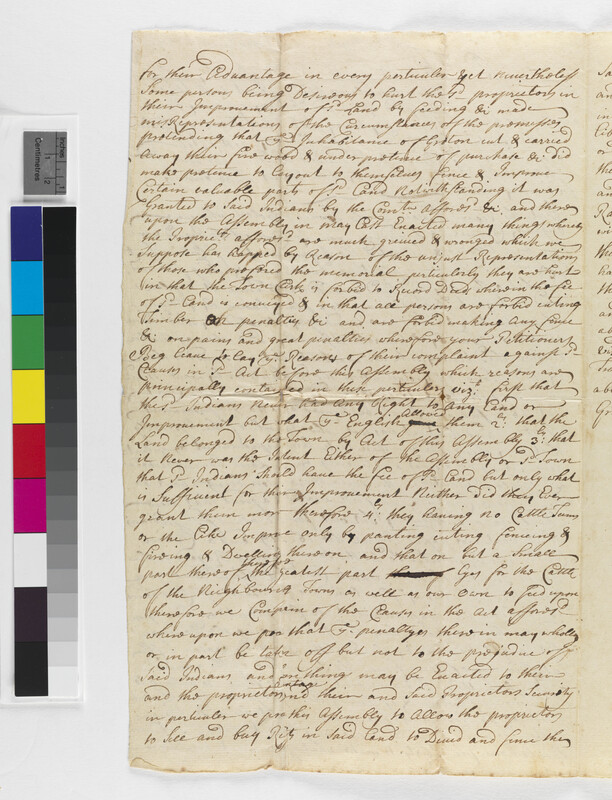 for their Advantage in every perticuler yet nevertheless
Some persons being Desireous to hurt the sd proprietors in
their Improvement of sd Land by feeding &c made
misRepresentations of the Circumstances of the premeses
pretending that ye Inhabitance of Groton cut & carried
away their fire wood & under pretence of purchase &c did
make pretence to lay out to themselves fence & Improve
Certain valuable parts of sd Land Notwithstanding it was
Granted to Said Indians by the Comtte aforesd &c and there
upon the Assembly in may Last Enacted many things whereby
the Proprietrs aforesd are much greived & wronged which we
Suppose has happed by Reason of the unjust Representations
of those who prefered the memorial perticularly they are hurt
in that the Town Clerk is forbid to Record Deeds wherein the fee
of sd Land is conveyed & in that all persons are forbid cuting
Timber on penalties &c and are forbid making any fence
&c on pains and great penalties wherefore your Petitioners
Beg leave to Lay ye Reasons of their complaint against sd
Clauses in sd Act before this Assembly which reasons are
principally contained in these perticulers vizt first that
the sd Indians Never had Any Right to Any Land or
Improvement but what ye English Allowed them 2ly that the
Land belonged to the Town by Act of this Assembly 3ly that
it Never was the Intent Either of the Assembly or sd Town
that sd Indians Should have the fee of sd Land but only what
is Suffitient for their Improvement Neither Did they Ever
grant them more therefore 4ly they having no Cattle Teems
or the Like Improve only by planting cuting fenceing &
fireing & Dwelling thereon and that on but a Small
part thereof therefore the Greatest part Lyes for the Cattle
of the Neighbouring Towns as well as our own to feed upon
therefore we Complain of the Clauses in the Act aforesd
where upon we pray that ye penaltyes there in may wholly
or in part be take off but not to the prejudice off
Said Indians and anything may be Enacted to their
and the proprietors and their and Said Proprietors Security
in perticuler we pray this Assembly to Allow the proprietors
to Sell and buy Rits in Said Land to Devid and fence the